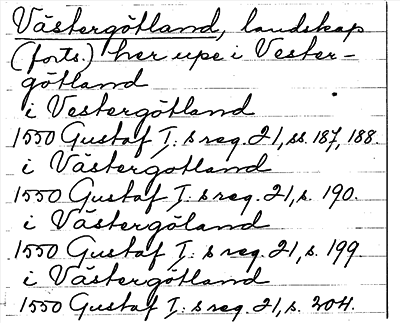 Västergötland, landskap
(forts.) her upe i Vester-
götland
i Vestergötland
1550 Gustaf I:s reg. 21, ss. 187, 188.
i Västergotland
1550 Gustaf I:s reg. 21, s. 190.
i Västergöland
1550 Gustaf I:s reg. 21, s. 199
i Västergötland
1550 Gustaf I:s reg. 21, s. 204.